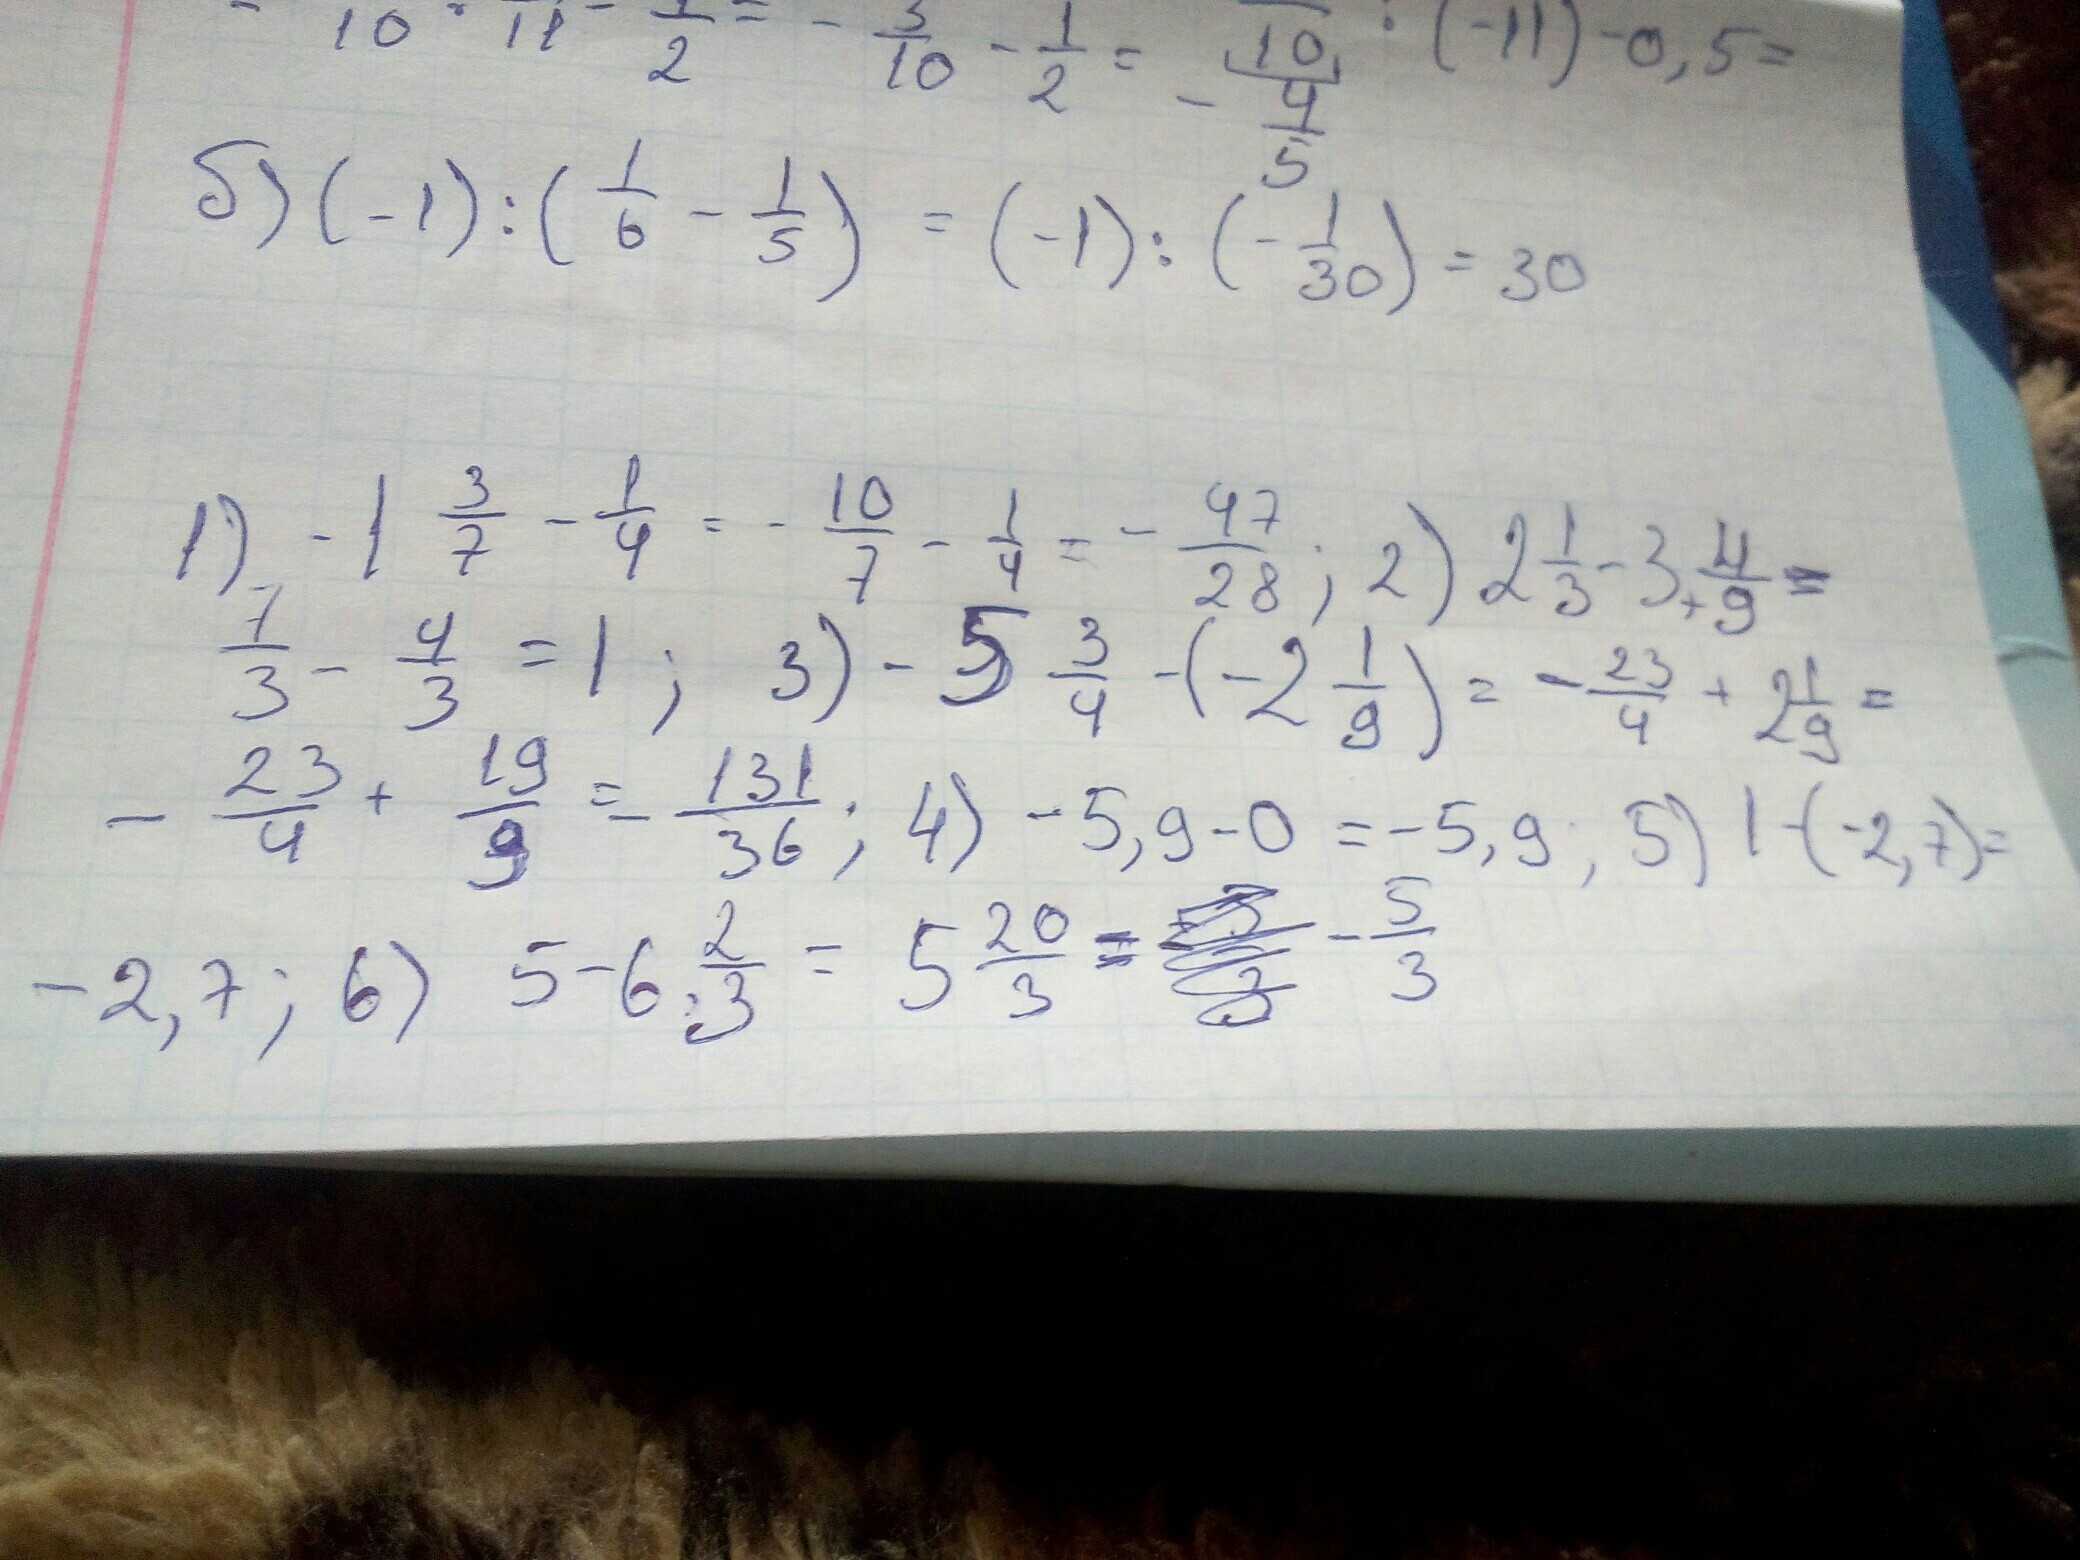 - 10 · 11 - 1/2 = - 3/10 - 1/2 = - 10 4/5 : (-11) - 0,5 =
б) (-1) : (1/6 - 1/5) = (-1) : (-1/30) = 30
1) -1 3/7 - 1/4 = - 10/7 - 1/4 = - 47/28 ; 2) 2 1/3 - 3 · 4/9 =
7/3 - 4/3 = 1 ; 3) - 5 3/4 - (-2 1/9) = - 23/4 + 2 1/9 =
- 23/4 + 19/9 = - 131/36 ; 4) -5,9 - 0 = -5,9 ; 5) 1 · (-2,7) =
-2,7 ; 6) 5 - 6 : 2/3 = 5 20/3 = - 5/3